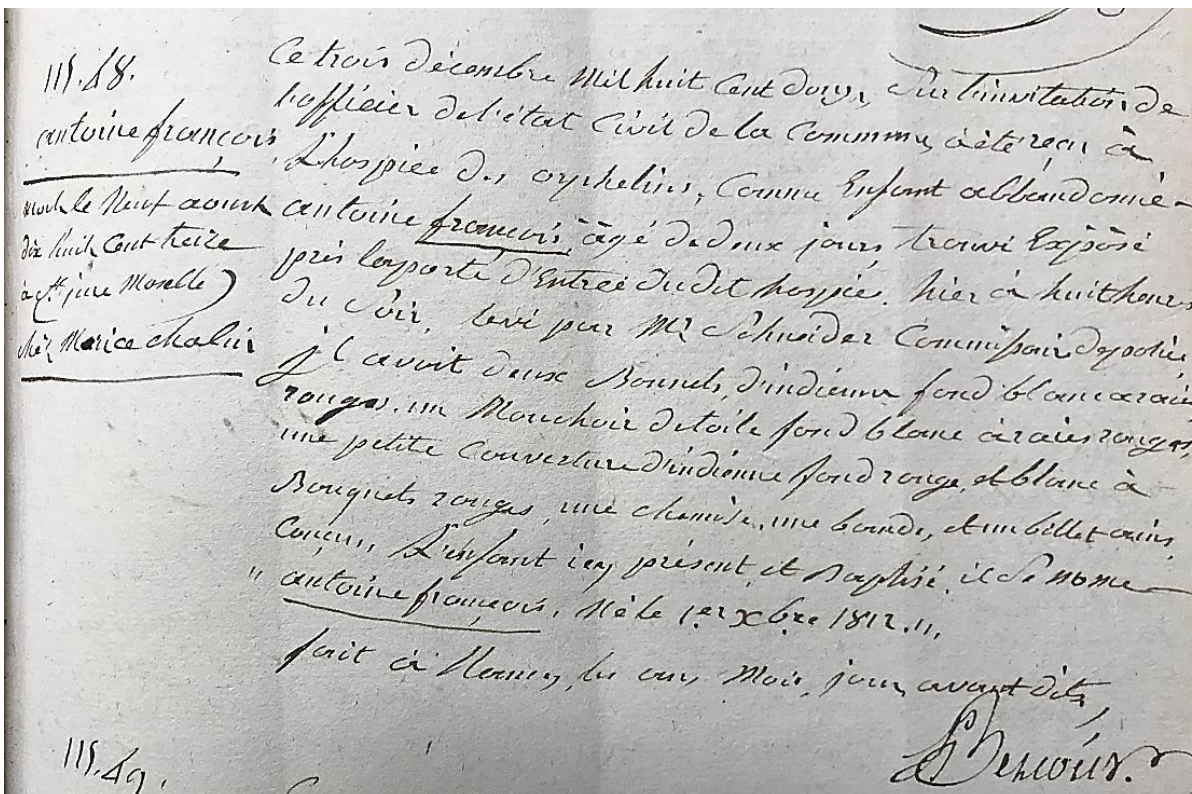 111.48.
antoine françois
mort le Neuf aoust
dix huit Cent treize
à Ste jure Moselle)
chéz Marice chalin
Ce trois décembre Mil huit Cent douze, Sur l'invitation de
l'officier de l'état Civil de la Commune, à été reçu à
L'hospice des orphelins, Comme Enfant abbandonné
antoine françois, âgé de deux jours, trouvé Exposé
près la porte d'Entrée du dit hospice, hier à huit heures
du Soir, levé par Mr Schneider Commissaire de police,
jl avoit deux Bonnets d'indienne fond blanc à raies
rouges, un Mouchoir de toile fond blanc à raies rouges,
une petite Couverture d'indienne fond rouge, et blanc à
Bouquets rouges, une chemise, une bande, et un billet ainsi
Conçus, L'enfant icy présent, et Baptisé, il se nome
" antoine françois, Né le 1er xbre 1812. "
fait à Nancy, les ans, Mois, jour, avant dits,
111.49.